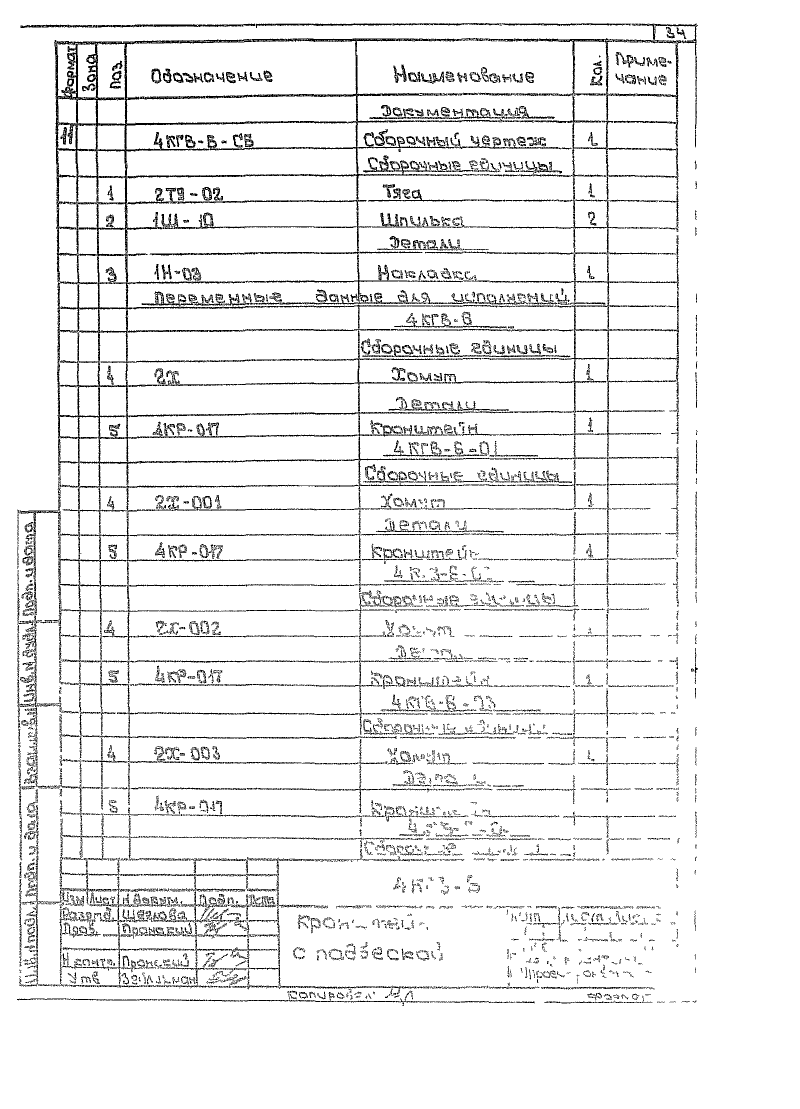 34
Формат Зона Поз. Обозначение Наименование Кол. Приме-
чание
Документация
11 4КГВ-Б-СБ Сборочный чертеж 1
Сборочные единицы
1 2Т9-02 Тяга 1
2 1Ш-10 Шпилька 2
Детали
3 1Н-03 Накладка 1
Переменные данные для исполнений
4КГВ-Б
Сборочные единицы
4 2Х Хомут 1
Детали
5 4КР-017 Кронштейн 1
4КГВ-Б-01
Сборочные единицы
4 2Х-001 Хомут 1
Детали
5 4КР-017 Кронштейн 1
Сборочные единицы
4 2Х-002 Хомут 1
Детали
5 4КР-017 Кронштейн 1
4КГВ-Б-03
Сборочные единицы
4 2Х-003 Хомут 1
Детали
5 4КР-017 Кронштейн
Сборочные
4КГВ-Б
Изм Лист № докум. Подп. Дата
Разраб. Щеглова
Пров. Пронский
Н.контр. Пронский
Утв
Кронштейн
с подвеской
Лит Лист
Копировал
Формат
Инв.№ подл. Подп. и дата Взам.инв.№ Инв.№ дубл. Подп. и дата